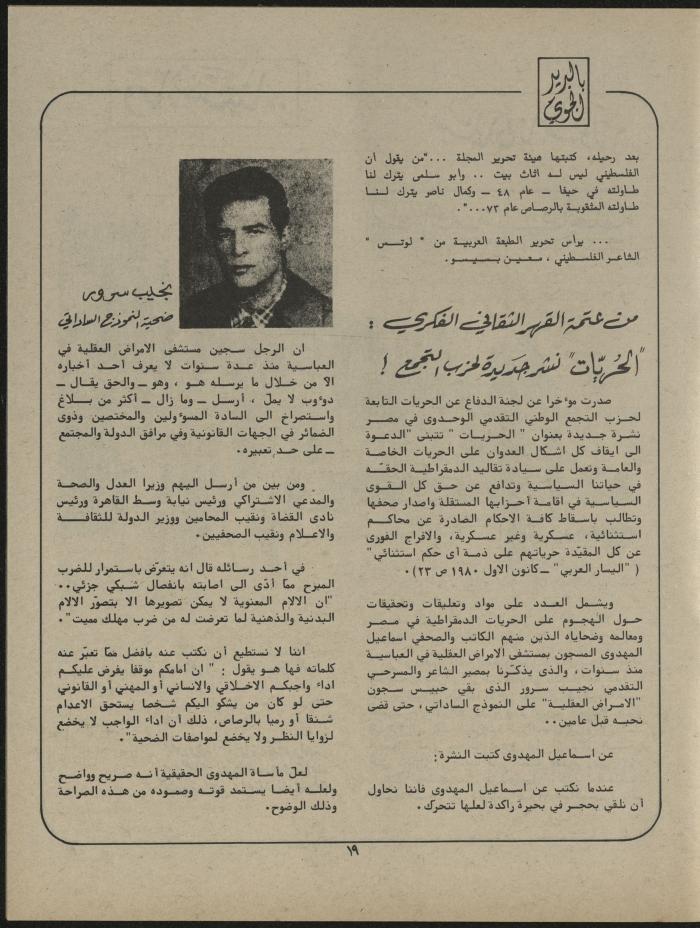 بالبريد
الجوي
بعد رحيله، كتبتها هيئة تحرير المجلة ..."من يقول أن
الفلسطيني ليس له اثاث بيت .. وأبو سلمى يترك لنا
طاولته في حيفا ـ عام ٤٨ ـ وكمال ناصر يترك لنا
طاولته المثقوبة بالرصاص عام ٧٣...".
... يرأس تحرير الطبعة العربية من " لوتس "
الشاعر الفلسطيني ، معين بسيسو .
من عتمة القهر الثقافي الفكري :
"الحُريّات" نشرة جديدة لحزب التجمع !
صدرت موءخرا عن لجنة الدفاع عن الحريات التابعة
لحزب التجمع الوطني التقدمي الوحدوى في مصر
نشرة جديدة بعنوان " الحريات " تتبنى "الدعوة
الى ايقاف كل اشكال العدوان على الحريات الخاصة
والعامة ونعمل على سيادة تقاليد الدمقراطية الحقّه
في حياتنا السياسية وتدافع عن حق كل القوى
السياسية في اقامة أحزابها المستقلة واصدار صحفها
وتطالب باسقاط كافة الاحكام الصادرة عن محاكم
استثنائية، عسكرية وغير عسكرية، والافراج الفورى
عن كل المقيّدة حرياتهم على ذمة أى حكم استثنائي"
( "اليسار العربي" ـ كانون الاول ١٩٨٠ ص ٢٣).
ويشمل العدد على مواد وتعليقات وتحقيقات
حول الهجوم على الحريات الدمقراطية في مصر
ومعالمه وضحاياه الذين منهم الكاتب والصحفي اسماعيل
المهدوى المسجون بمستشفى الامراض العقلية في العباسية
منذ سنوات ، والذى يذكّرنا بمصير الشاعر والمسرحي
التقدمي نجيب سرور الذى بقي حبيس سجون
"الامراض العقلية" على النموذج الساداتي ، حتى قضى
نحبه قبل عامين..
عن اسماعيل المهدوى كتبت النشرة:
عندما نكتب عن اسماعيل المهدوى فاننا نحاول
أن نلقي بحجر في بحيرة راكدة لعلها تتحرك.
نجيب سرور
ضحية النموذج الساداتي
ان الرجل سجين مستشفى الامراض العقلية في
العباسية منذ عدة سنوات لا يعرف أحد أخباره
الاّ من خلال ما يرسله هو ، وهو ـ والحق يقال ـ
دوءوب لا يملّ ، أرسل ـ وما زال ـ أكثر من بلاغ
واستصراخ الى السادة المسوءولين والمختصين وذوى
الضمائر في الجهات القانونية وفي مرافق الدولة والمجتمع
ـ على حد تعبيره.
ومن بين من أرسل اليهم وزيرا العدل والصحة
والمدعي الاشتراكي ورئيس نيابة وسط القاهرة ورئيس
نادى القضاة ونقيب المحامين ووزير الدولة للثقافة
والاعلام ونقيب الصحفيين.
في أحد رسائله قال انه يتعرّض باستمرار للضرب
المبرح ممّا أدّى الى اصابته بانفصال شبكي جزئي..
"ان الالام المعنوية لا يمكن تصويرها الا بتصوّر الالام
البدنية والذهنية لما تعرضت له من ضرب مهلك مميت".
اننا لا نستطيع أن نكتب عنه بافضل ممّا تعبّر عنه
كلماته فها هو يقول : " ان امامكم موقفا يفرض عليكم
اداء واجبكم الاخلاقي والانساني أو المهني أو القانوني
حتى لو كان من يشكو اليكم شخصا يستحق الاعدام
شنقا أو رميا بالرصاص، ذلك أن اداء الواجب لا يخضع
لزوايا النظر ولا يخضع لمواصفات الضحية".
لعلّ مأساة المهدوى الحقيقية أنه صريح وواضح
ولعله أيضا يستمد قوته وصموده من هذه الصراحة
وذلك الوضوح.
١٩